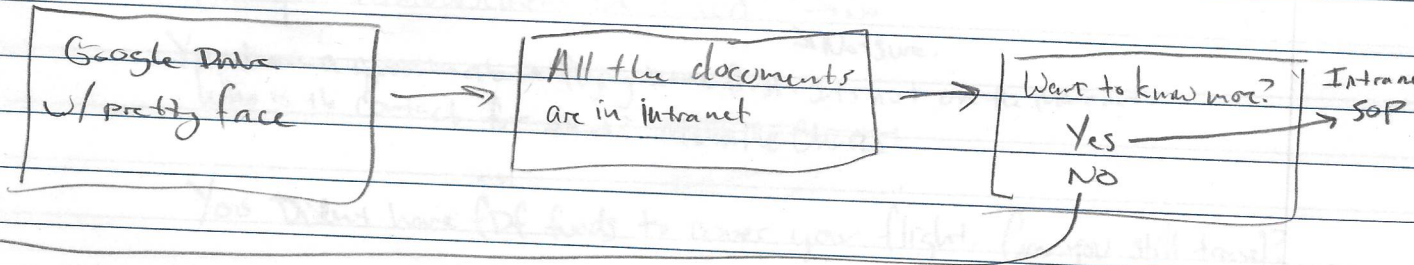 Google Drive
w/ pretty face
All the documents
are in intranet
Want to know more?
Yes
No
Intran
SOP